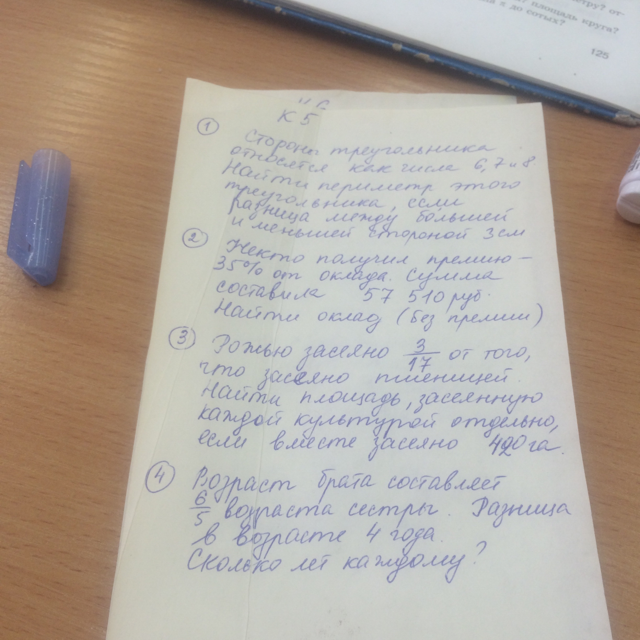 125
К 5
① Стороны треугольника
относятся как числа 6, 7 и 8
Найти периметр этого
треугольника, если
разница между большей
и меньшей стороной 3 см
② Некто получил премию –
35% от оклада. Сумма
составила 57 510 руб.
Найти оклад (без премии)
③ Рожью засеяно 3/17 от того,
что засеяно пшеницей.
Найти площадь, засеянную
каждой культурой отдельно,
если вместе засеяно га.
④ Возраст брата составляет
6/5 возраста сестры. Разница
в возрасте 4 года.
Сколько лет каждому?